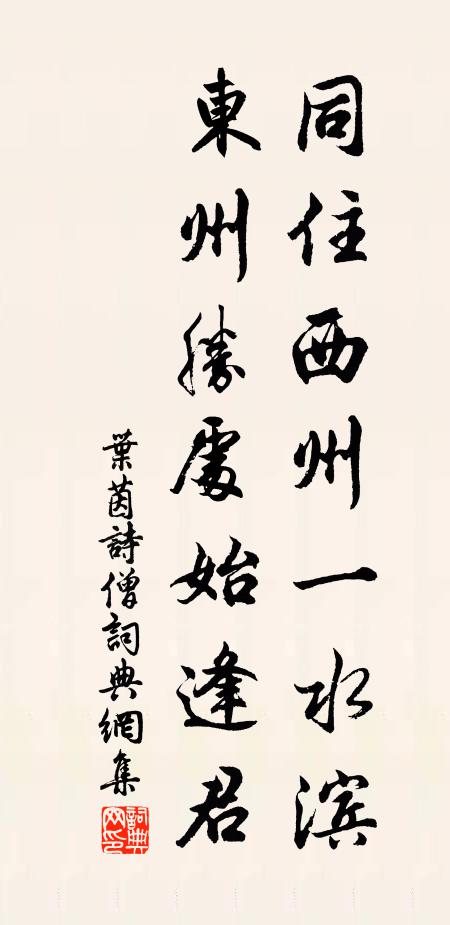 同住西州一水滨
東州勝處始逢君
葉茵詩僧詞典網集
詞典网印